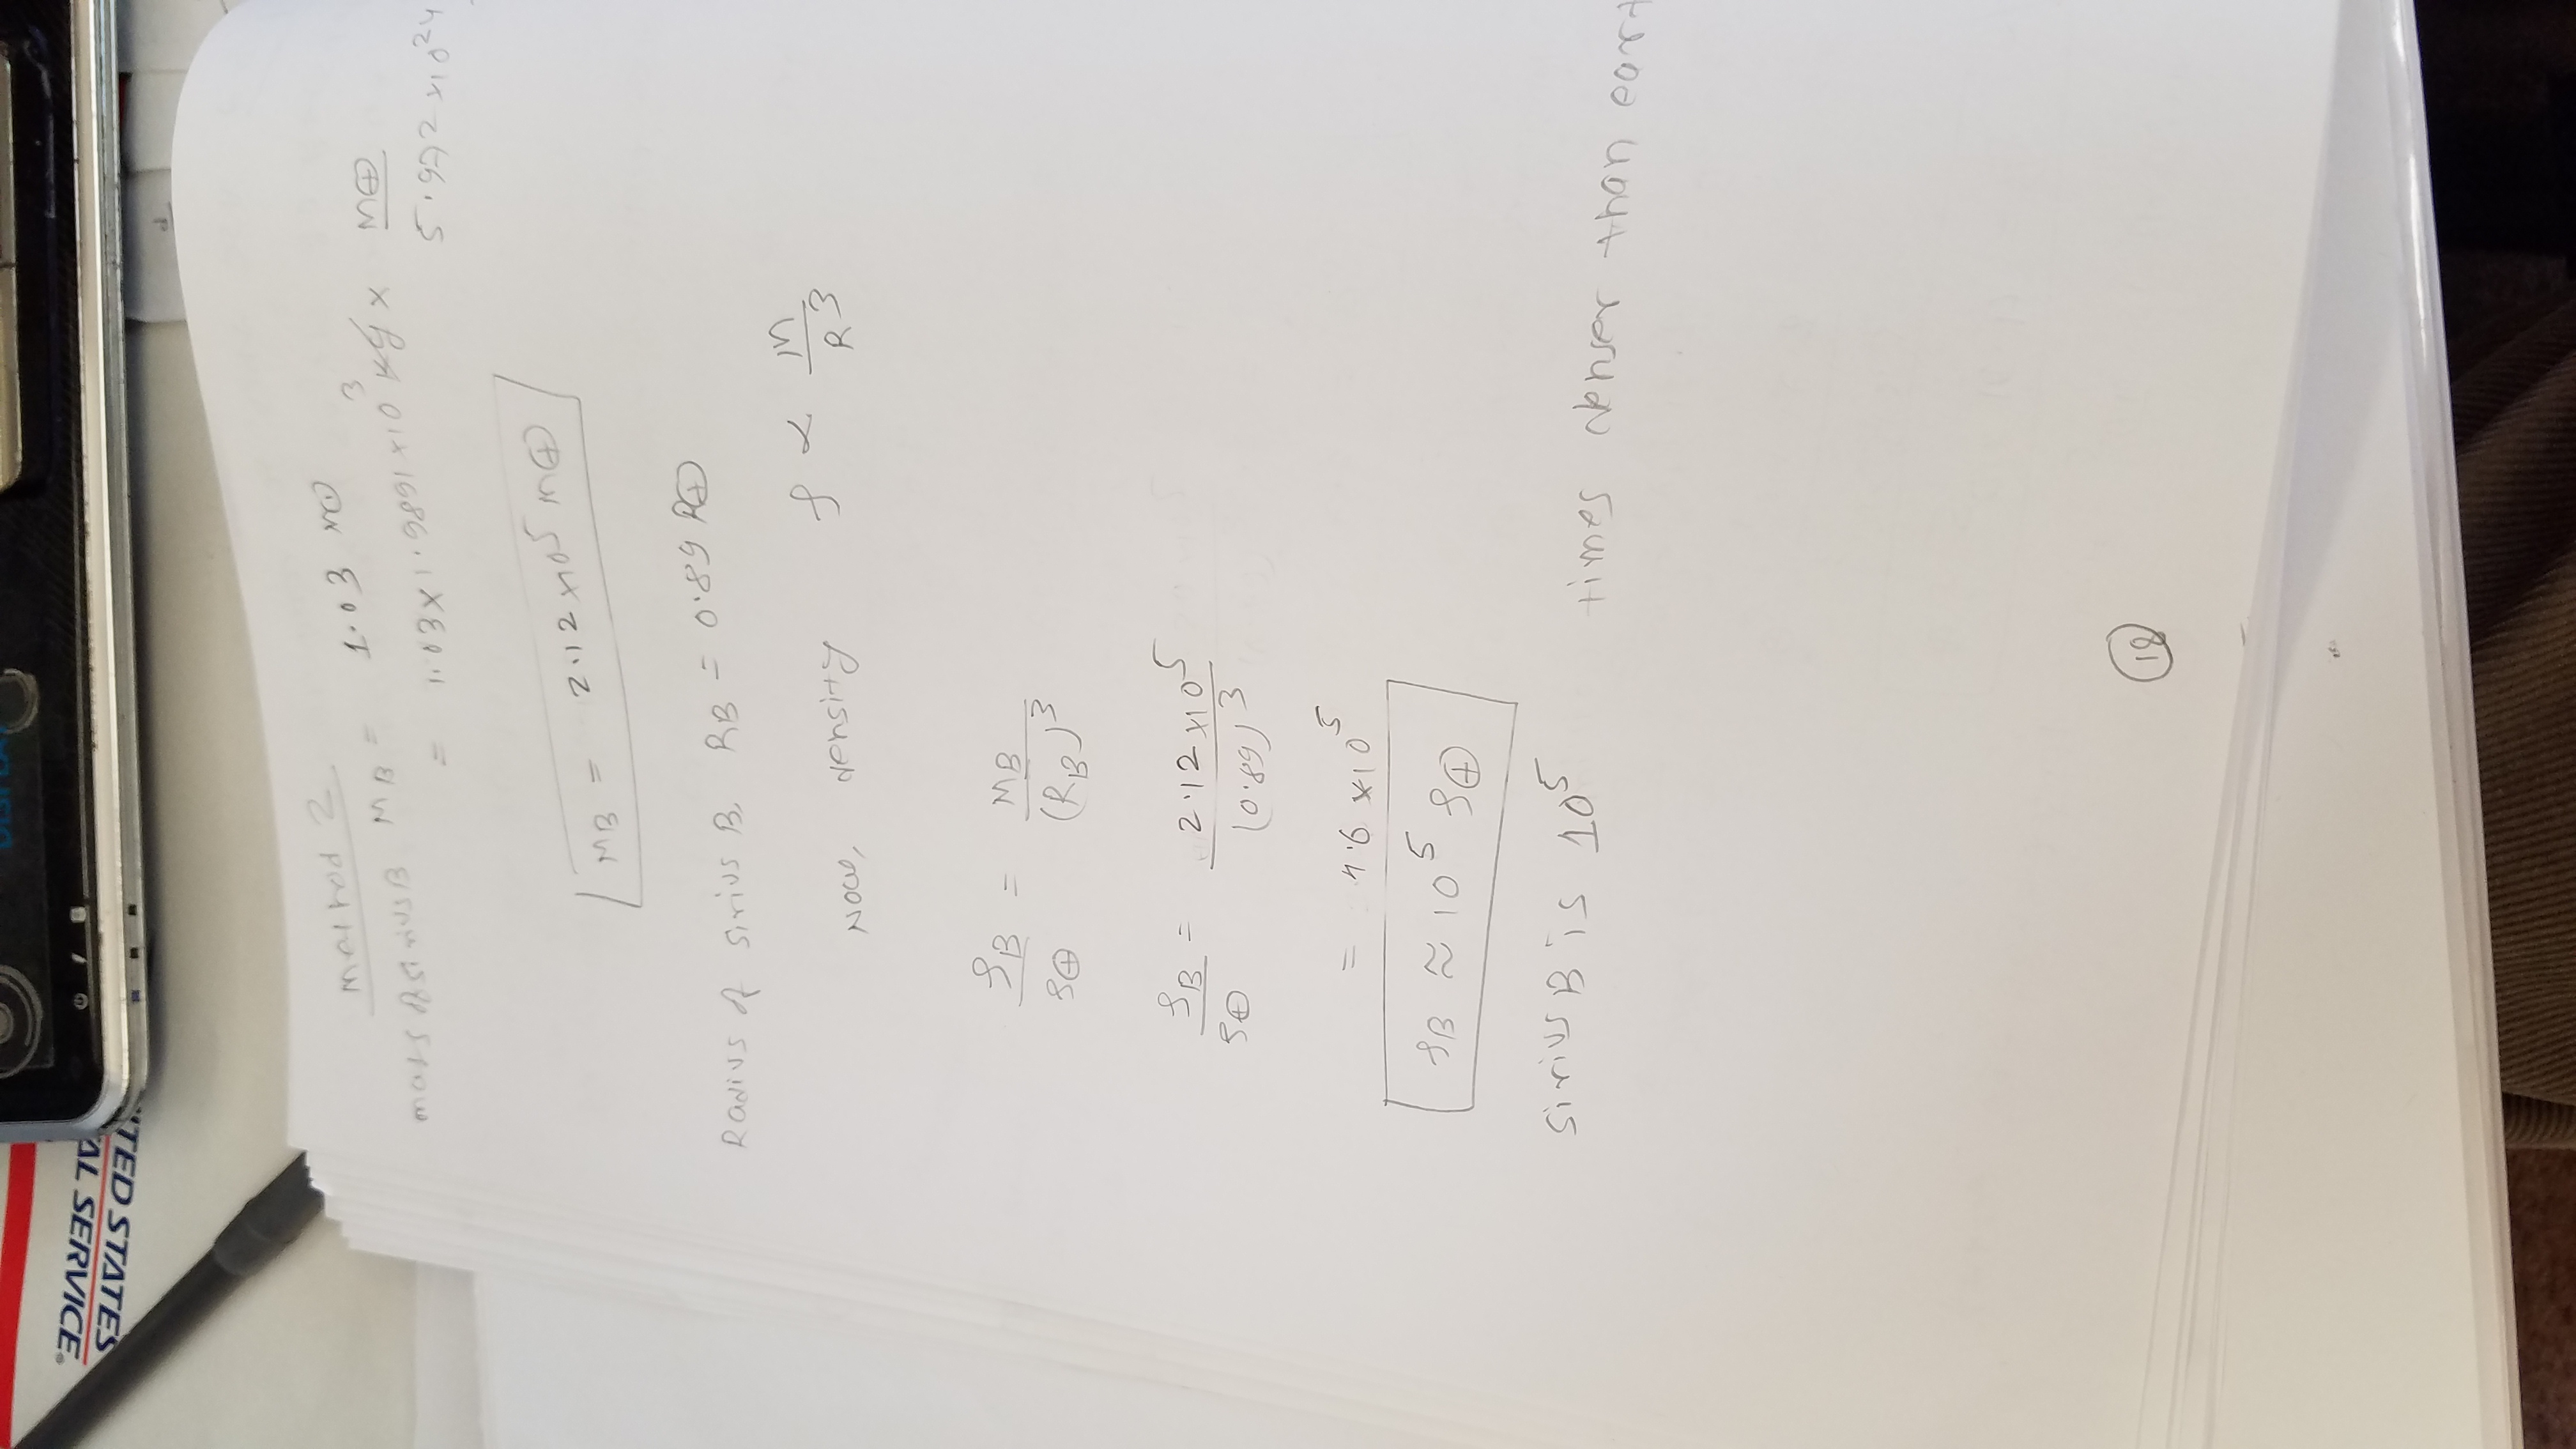 DISPLAY
UNITED STATES
AL SERVICE®
Method 2
mass of sirius B MB = 1.03 M⊙
= 1.03 × 1.9891 × 10³ kg × M⊕ / 5.972 × 10²⁴
MB = 2.12 × 10⁵ M⊕
Radius of sirius B, RB = 0.89 R⊕
Now, density ρ ∝ M / R³
ρB / ρ⊕ = MB / (RB)³
ρB / ρ⊕ = 2.12 × 10⁵ / (0.89)³
= 4.6 × 10⁵
ρB ≈ 10⁵ ρ⊕
Sirius B is 10⁵ times denser than eart
18